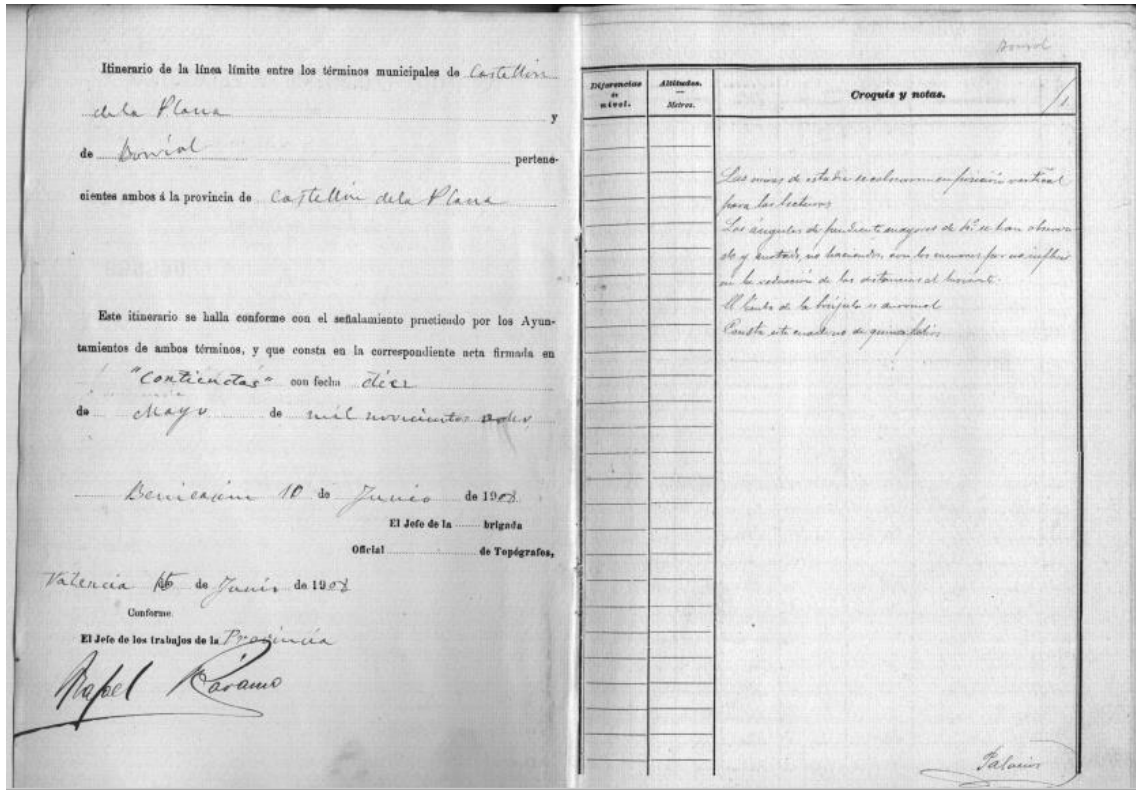 Itinerario de la línea límite entre los términos municipales de Castellón
de la Plana y
de Borriol pertene-
cientes ambos á la provincia de Castellón de la Plana
Este itinerario se halla conforme con el señalamiento practicado por los Ayun-
tamientos de ambos términos, y que consta en la correspondiente acta firmada en
"Contiendas" con fecha diez
de Mayo de mil novecientos
Benicasim 10 de Junio de 1908
El Jefe de la brigada
Oficial de Topógrafos,
Valencia de Junio de 1908
Conforme
El Jefe de los trabajos de la Provincia
Rafael Páramo
Borriol
Diferencias de nivel.
Altitudes. — Metros.
Croquis y notas.
1.
Las miras de estadia se colocaron en posición vertical
para las lecturas
Los ángulos de pendiente mayores de se han observa-
do y anotado, no haciendo con los menores por no influir
en la reducción de las distancias al horizonte.
El limbo de la brújula es
Consta este cuaderno de quince folios
Palacios